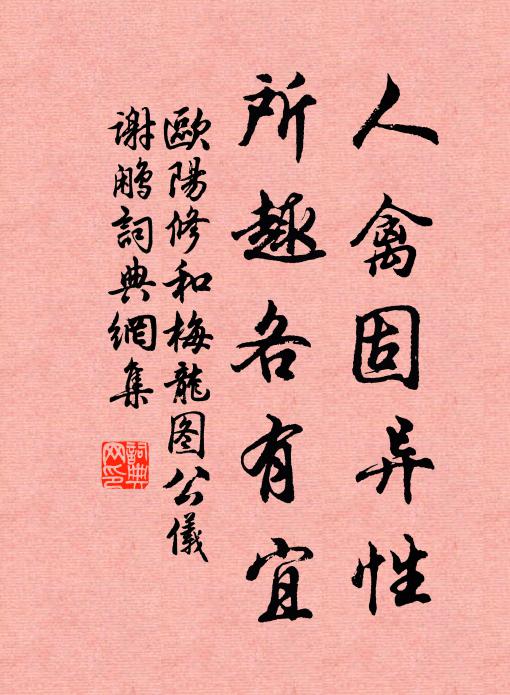 人禽固异性
所趣各有宜
歐陽修和梅龍图公儀
謝鷳詞典網集
詞典网印